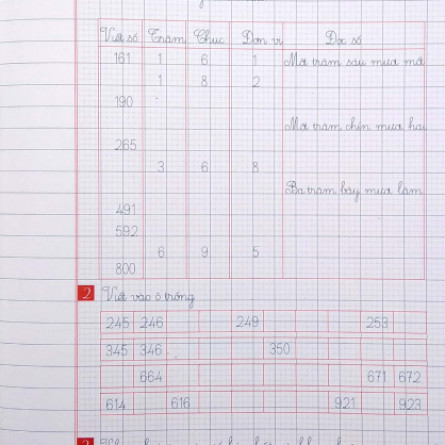 Viết số Trăm Chục Đơn vị Đọc số
161 1 6 1 Một trăm sáu mươi mố
1 8 2
190
Một trăm chín mươi hai
265
3 6 8
Ba trăm bảy mươi lăm
491
592
6 9 5
800
2 Viết vào ô trống
245 246 249 253
345 346 350
664 671 672
614 616 921 923